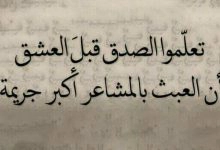 تعلّموا الصدق قبلَ العشق
أن العبث بالمشاعر أكبر جريمة